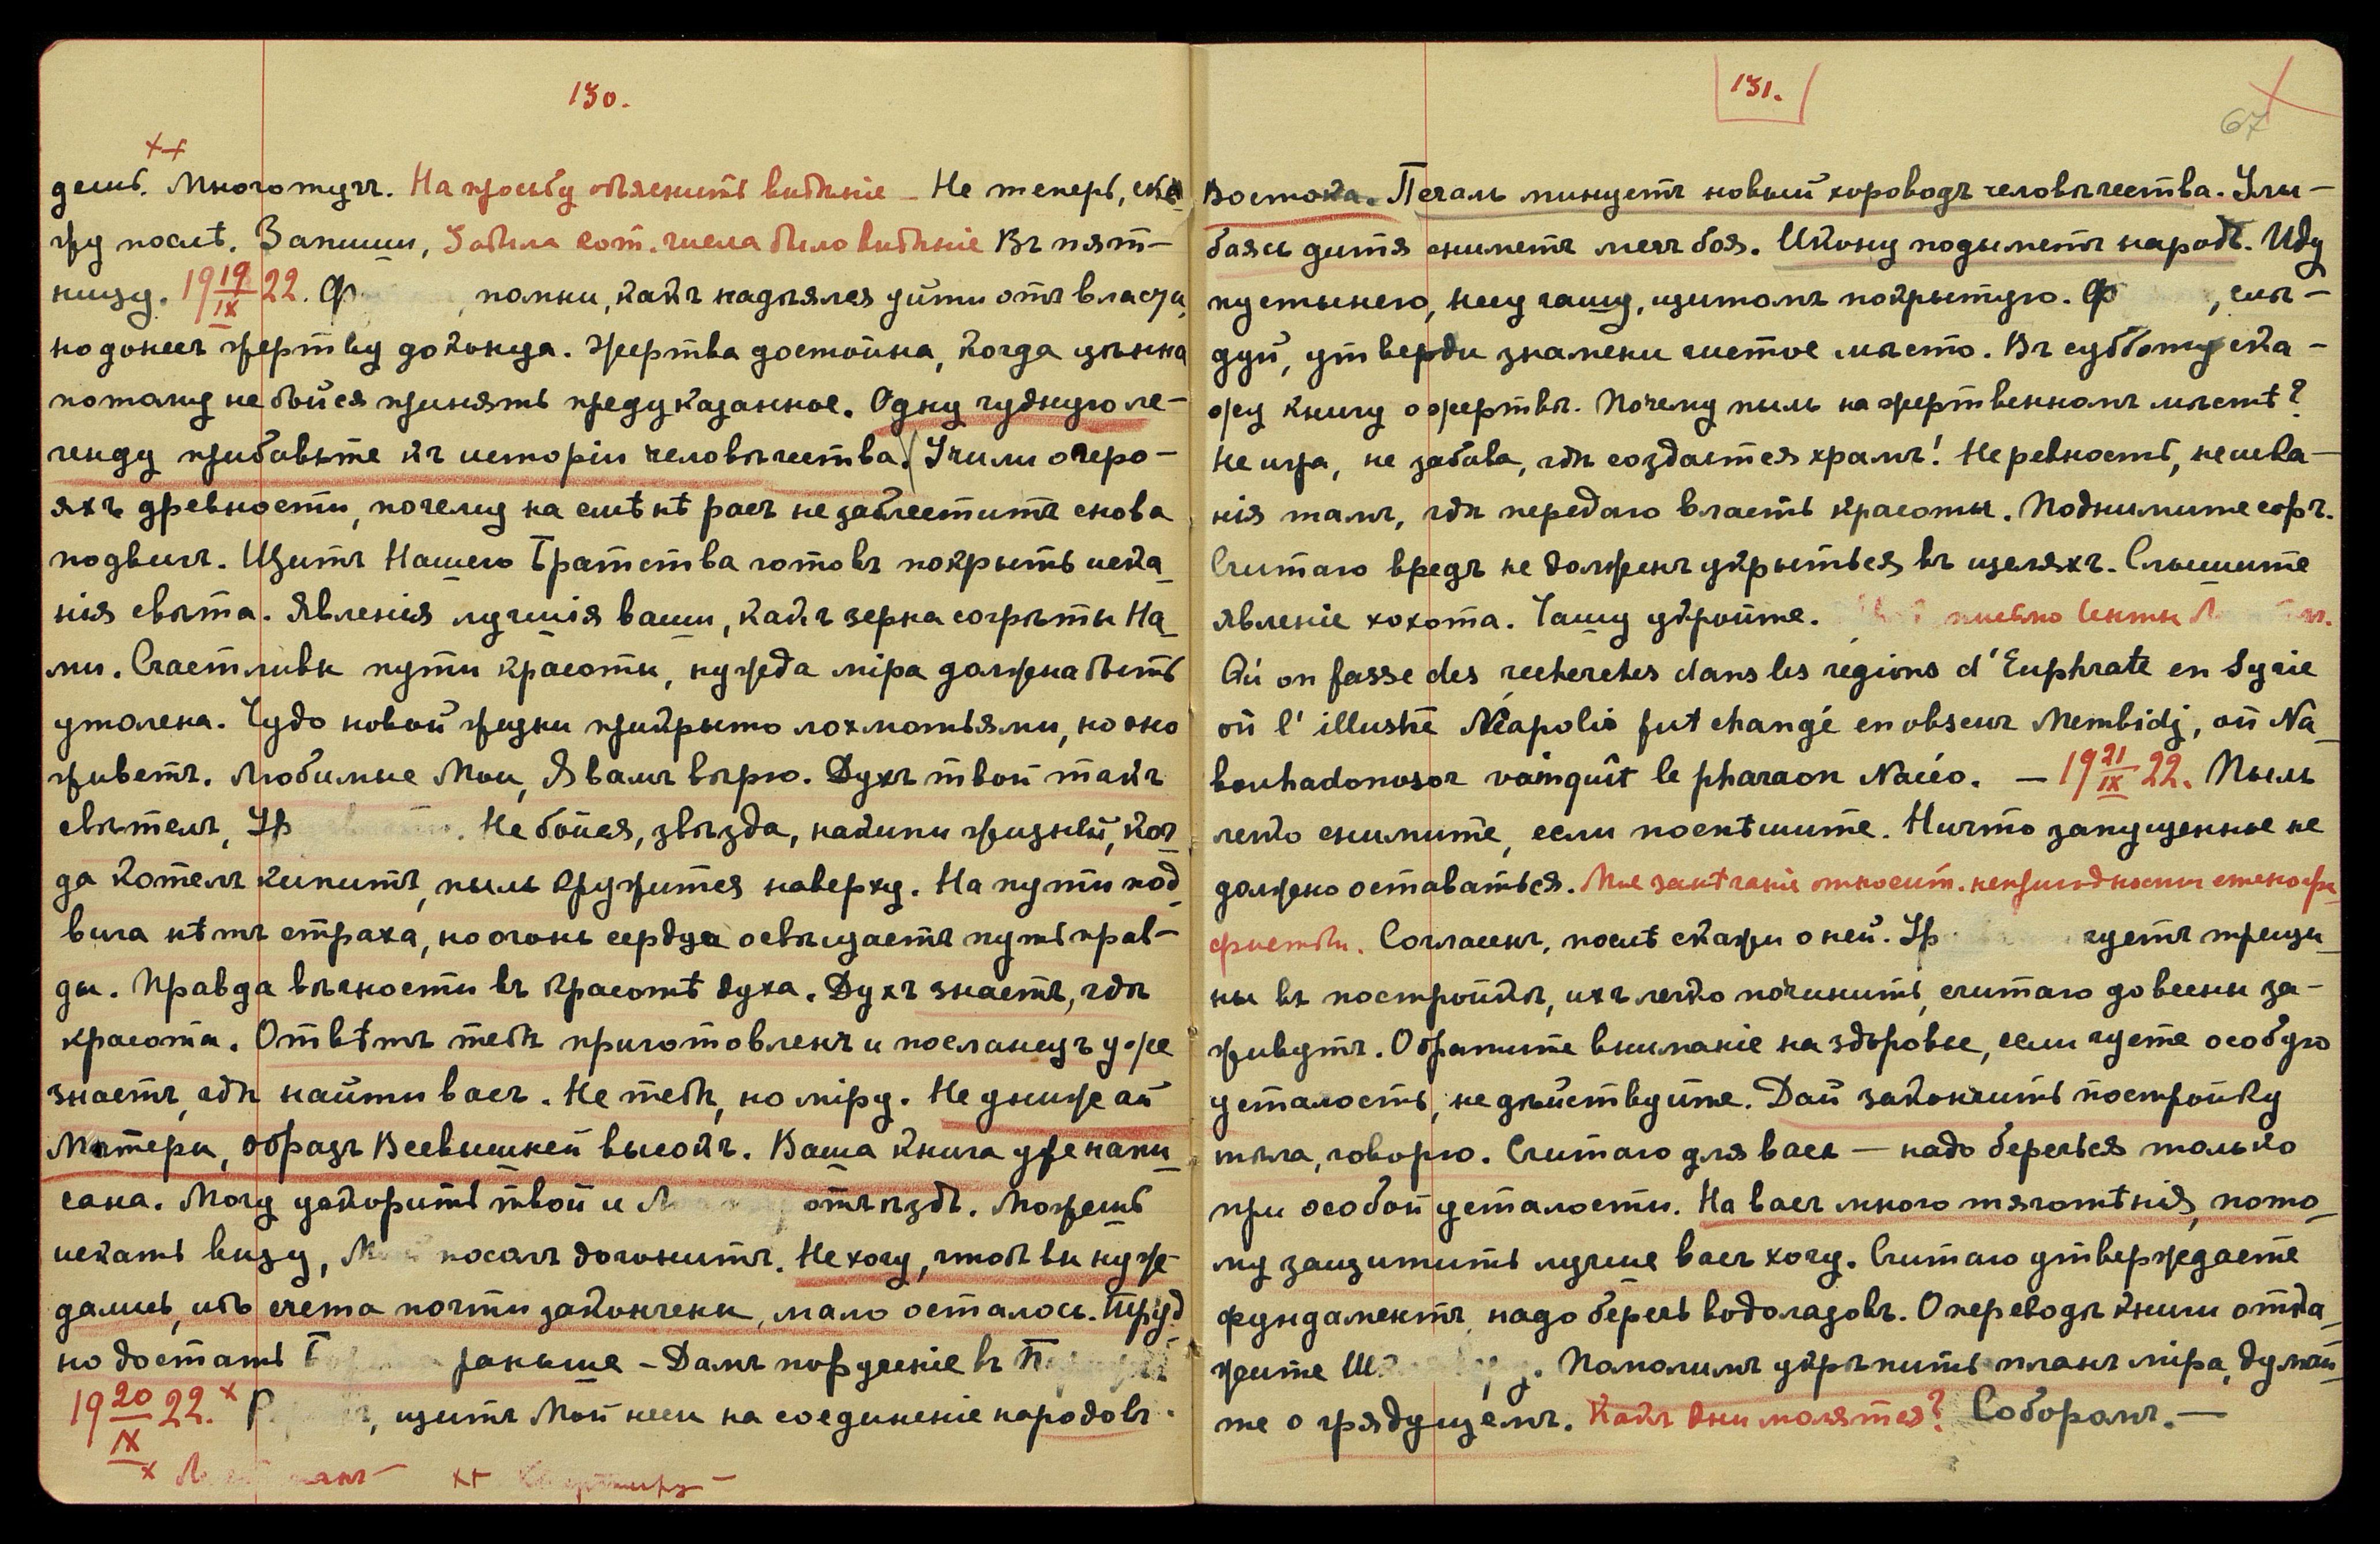 130.
++
дешь. Много туч. На просьбу объяснить видѣніе — Не теперь, ска
жу послѣ. Запиши, Забыла сот. числа было видѣніе Въ пят-
ницу. 19 19/IX 22. Ф , помни, какъ надѣялся уйти отъ власти,
но донесъ жертву до конца. Жертва достойна, когда цѣнна
потому не бойся принять предуказанное. Одну чудную ле-
генду прибавьте къ исторіи человѣчества. Учили о геро-
яхъ древности, почему на смѣнѣ расъ не заблеститъ снова
подвигъ. Щитъ Нашего Братства готовъ покрыть иска
нія свѣта. Явленія лучшія ваши, какъ зерна согрѣты На
ми. Счастливы пути красоты, нужда міра должна быть
утолена. Чудо новой жизни прикрыто лохмотьями, но оно
живетъ. Любимые Мои, Я вамъ вѣрю. Духъ твой такъ
свѣтелъ, Ур . Не бойся, звѣзда, накипи жизней, ког
да котелъ кипитъ, пыль кружится наверху. На пути под
вига нѣтъ страха, но огонь сердца освѣщаетъ путь прав-
ды. Правда вѣчности въ красотѣ духа. Духъ знаетъ, гдѣ
красота. Отвѣтъ тебѣ приготовленъ и посланецъ уже
знаетъ, гдѣ найти васъ. Не тебѣ, но міру. Не унижай
Матери, образъ Всевышней высокъ. Ваша книга уже напи
сана. Могу ускорить твой и отъѣздъ. Можешь
искать визу, М посолъ догонитъ. Не хочу, чтобъ вы нуж-
дались, ибо счета почти закончены, мало осталось. Труд
но достать Б раньше — Дамъ порученіе въ П
19 20/IX 22. x Р , щитъ Мой неси на соединеніе народовъ.
x ++
131.
67
Востока. Печаль минуетъ новый хороводъ человѣчества. Улы-
баясь дитя снимет мечъ боя. Икону подыметъ народъ. Иду
пустынею, несу чашу, щитомъ покрытую. Ф , слѣ-
дуй, утверди знамени чистое мѣсто. Въ субботу ска-
жу книгу о жертвѣ. Почему пыль на жертвенномъ мѣстѣ?
Не игра, не забава, гдѣ создается храмъ! Не ревность, не исва-
нія тамъ, гдѣ передаю власть красоты. Поднимите соръ.
Считаю вредъ не долженъ укрыться въ щеляхъ. Слышите
явленіе хохота. Чашу укройте. письмо
Qu'on fasse des recherches dans les régions d'Euphrate en Syrie
où l'illustre Néapolis fut changé en obscur Membidj, où Na
bouhadonosor vainquît le pharaon Nacéo. — 19 21/IX 22. Пыль
легко снимите, если поспѣшите. Ничто запущенное не
должно оставаться. Мое замѣчаніе относит. непригодности стеногра
фистки. Согласенъ, послѣ скажи о ней. Ур чуетъ трещи
ны въ постройкѣ, ихъ легко починить, считаю до весны за-
живутъ. Обратите вниманіе на здоровье, если чуете особую
усталость, не дѣйствуйте. Дай закончить постройку
тѣла, говорю. Считаю для васъ — надо беречься только
при особой усталости. На васъ много тяготѣнія, пото
му защитить лучше васъ хочу. Считаю утверждаете
фундаментъ, надо беречь водолазовъ. О переводѣ книги отка
жите Ш . Помолимъ укрѣпить планъ міра, думай
те о грядущемъ. Какъ Они молятся? Соборомъ. —